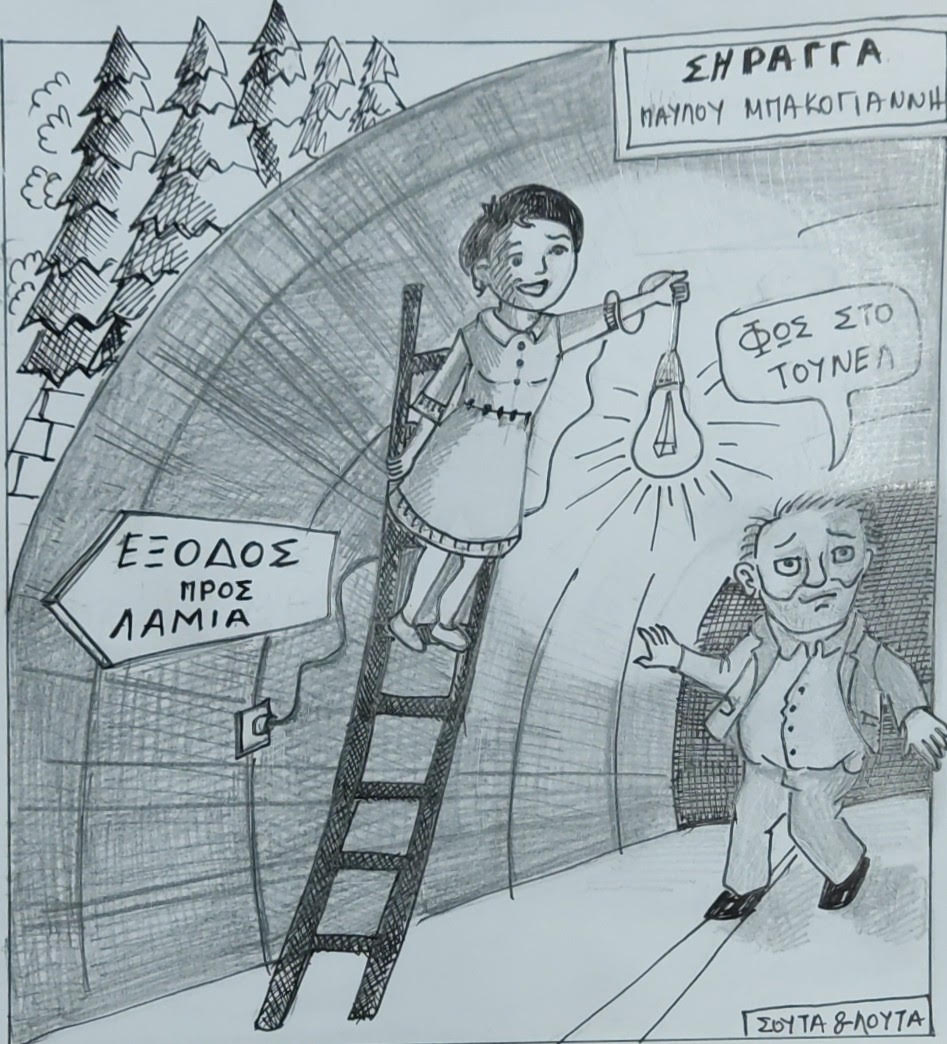 ΣΗΡΑΓΓΑ
ΠΑΥΛΟΥ ΜΠΑΚΟΓΙΑΝΝΗ
ΦΩΣ ΣΤΟ
ΤΟΥΝΕΛ
ΕΞΟΔΟΣ
ΠΡΟΣ
ΛΑΜΙΑ
ΣΟΥΤΑ & ΛΟΥΤΑ